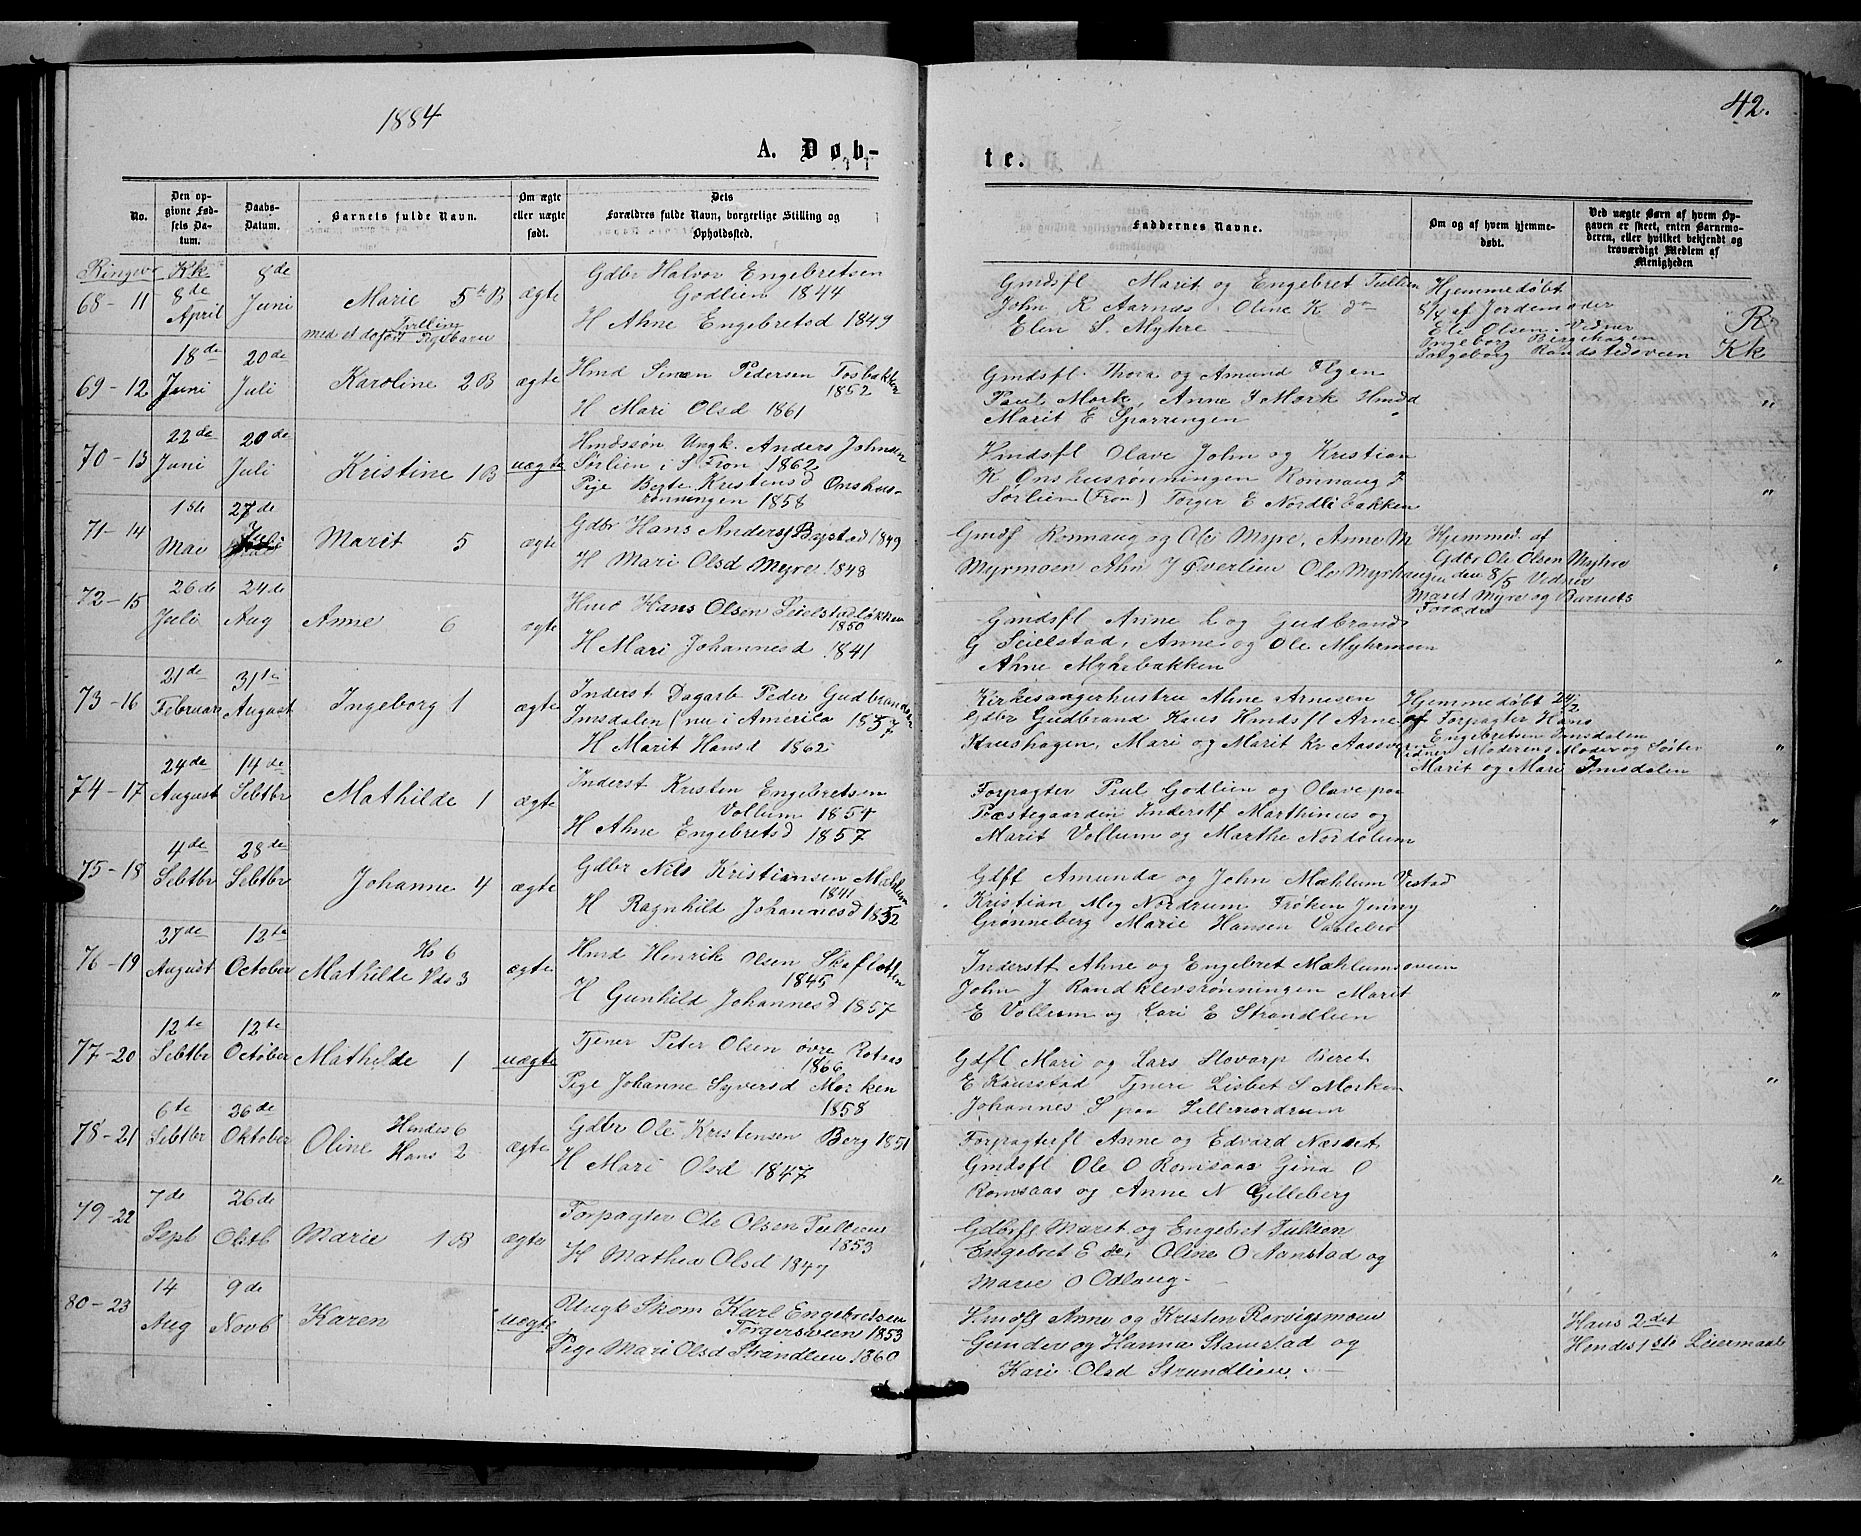 1884
42.
A. Døb-
te.
No.
Den op-
givne Fød-
sels Da-
tum.
Daabs-
Datum.
Barnets fulde Navn.
Om ægte
eller uægte
født.
Dets
Forældres fulde Navn, borgerlige Stilling og
Opholdssted.
Faddernes Navne.
Om og af hvem hjemme-
døbt.
Ved uægte Børn af hvem Op-
gaven er skeet, enten Barnemo-
deren, eller hvilket bekjendt og
troværdigt Medlem af
Menigheden
Ringebu Kk
68-11 8de April 8de Juni Marie 5te B ægte
med et dødfødt Tvilling Pigebarn
Gdbr Halvor Engebretsen
Godlien 1844
H Ahne Engebretsd 1849
Gmdsfl Marit og Engebret Tullien
John K Aarnæs Oline K do
Elen S. Myhre
Hjemmedøbt
8/4 af Jordemoder
Eli Olsen. Vidner
Ingeborg Bergehagen
Ingeborg Randstedsveen
R
Kk
69-12 18de Juni 20de Juli Karoline 2B ægte
Hmd Simen Pedersen Fosbakken
1852
H Mari Olsd 1861
Gmdsfl. Thora og Amund Flyen
Paul Mork, Anne J Mork Hmdd
Marit E Sparringen
"
70-13 22de Juni 20de Juli Kristine 1B uægte
Hmdssøn Ungk. Anders Johnsen
Sørlien i S Fron 1862
Pige Berte Kristensd Onshus-
rønningen 1858
Hmdsfl Olave John og Kristian
K Onshusrønningen Ronnaug J
Sørlien (Fron) Torger E Nordlibakken
"
71-14 1ste Mai 27de Juli Marit 5 ægte
Gdbr Hans Anders Bystad 1849
H Mari Olsd Myre 1848
Gmdf Ronnaug og Ole Myre, Anne M
Myrmoen Ahn J Øverlien Ole Myrhaugen
Hjemmed. af
Gdbr Ole Olsen Myhre
den 8/5 Vidner
Marit Myre og Barnets
Forældre
"
72-15 26de Juli 24de Aug Anne 6 ægte
Hmd Hans Olsen Seielstadløkken
1850
H Mari Johannesd 1841
Gmdsfl Anne L og Gudbrand
G Seielstad, Anne og Ole Myhrmoen
Ahne Myhrbakken
"
73-16 21de Februar 31te August Ingeborg 1 ægte
Inderst Dagarb Peder Gudbrandsen
Imsdalen (nu i Amerika 1857
H Marit Hansd 1862
Kirkesangerhustru Ahne Arnesen
Gdbr Gudbrand Kaus Hmdsfl Arne
Kraushagen, Mari og Marit Kr Aasveen
Hjemmedøbt 24/2
af Forpagter Hans
Engebretsen Imsdalen
Vidner Moderens Moder og Søster
Marit og Mari Imsdalen
"
74-17 24de August 14de Sebtbr Mathilde 1 ægte
Inderst Kristen Engebretsen
Vollum 1854
H Ahne Engebretsd 1857
Forpagter Paul Godlien og Olave paa
Præstegaarden Inderstf Marthinus og
Marit Vollum og Marthe Nordølum
"
75-18 4de Sebtbr 28de Sebtbr Johanne 4 ægte
Gdbr Nils Kristiansen Mæhlum
1841
H Ragnhild Johannesd 1852
Gdft Amunda og John Mæhlum Vestad
Kristian Meg Nordrum Frøken Jenny
Grønneberg Marie Hansen Vaalebro
"
76-19 27de August 12te October Mathilde Hs 6 Hds 3 ægte
Hmd Henrik Olsen Skaflotten
1845
H Gunhild Johannesd 1857
Inderstf Ahne og Engebret Mæhlumsveen
John J Randklevsrønningen Marit
E Vollum og Kari E Strandlien
"
77-20 12te Sebtbr 12te October Mathilde 1 uægte
Tjener Peter Olsen øvre Rotaas
1866
Pige Johanne Syversd Morken
1858
Gdfl Mari og Lars Hovorp Beret
E Kaurstad Tjnere Lisbet S Morken
Johannes S paa Lillenordrum
"
78-21 6te Sebtbr 26de Oktober Oline Hendes 6 Hans 2 ægte
Gdbr Ole Kristensen Berg 1851
H Mari Olsd 1847
Forpagterfl Anne og Edvard Næsset
Gmdsfl Ole O Romsaas Gina O
Romsaas og Anne N Gilleberg
"
79-22 7de Sept 26de Oktb Marie 1B ægte
Forpagter Ole Olsen Tullien
1853
H Mathea Olsd 1847
Gdbrfl Marit og Engebret Tullien
Engebret E do, Oline O Aanstad og
Marie O Odlaug
"
80-23 14 Aug 9de Novb Karen uægte
Ungk Skom Karl Engebretsen
Torgersveen 1853
Pige Mari Olsd Strandlien 1860
Hmdfl Anne og Kristen Rørvigsmoen
Gunder og Hanna Stamstad og
Kari Olsd Strandlien.
Hans 2det
Hendes 1ste Leiermaal